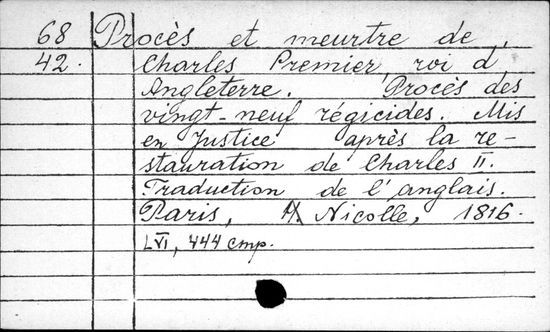 68 Procès et meurtre de
42. Charles Premier, roi d'
Angleterre. Procès des
vingt-neuf régicides. Mis
en Justice après la re-
stauration de Charles II.
Traduction de l'anglais.
Paris, H. Nicolle, 1816.
LVI, 444 cmp.